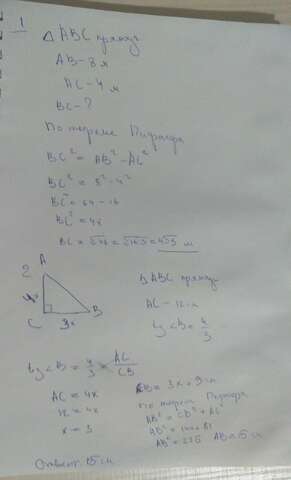 1 △ ABC прямоуг
AB - 8 м
AC - 4 м
BC - ?
По теореме Пифагора
BC² = AB² - AC²
BC² = 8² - 4²
BC² = 64 - 16
BC² = 48
BC = √48 = √16·3 = 4√3 м
2 A
△ ABC прямоуг
4x
AC - 12 см
C 3x B
tg < B = 4/3
tg < B = 4/3 = AC/CB
AC = 4x
12 = 4x
x = 3
CB = 3x = 9 см
по теореме Пифагора
AB² = CB² + AC²
AB² = 144 + 81
AB² = 225 AB = 15 см
Ответ: 15 см